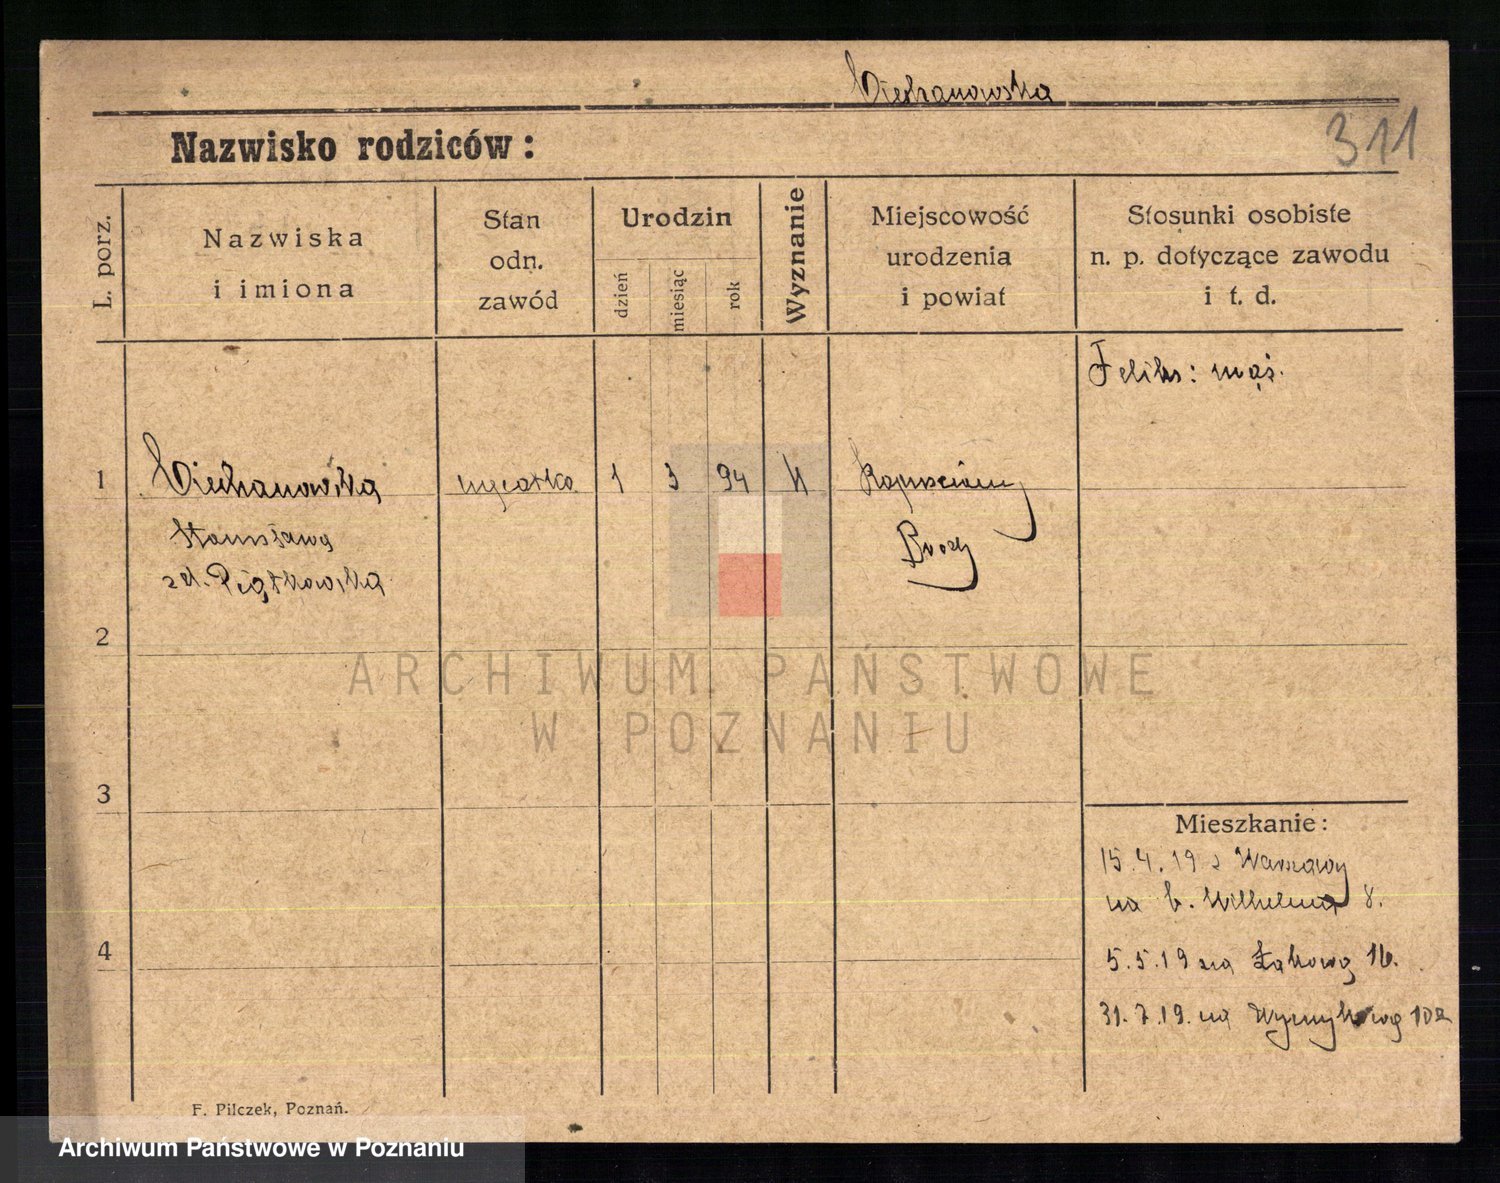 Ciechanowska
Nazwisko rodziców:
311
L. porz.
Nazwiska
i imiona
Stan
odn.
zawód
Urodzin
dzień
miesiąc
rok
Wyznanie
Miejscowość
urodzenia
i powiat
Stosunki osobiste
n. p. dotyczące zawodu
i t. d.
Feliks: mąż.
1
Ciechanowska
1 3 94
Stanisława
zd. Piątkowska
Brody
2
3
4
Mieszkanie:
15.4.19 z Warszawy
na b. Wilhelma 8.
5.5.19 na Łąkową 16.
31.7.19. na
F. Pilczek, Poznań.
ARCHIWUM PAŃSTWOWE
W POZNANIU
Archiwum Państwowe w Poznaniu